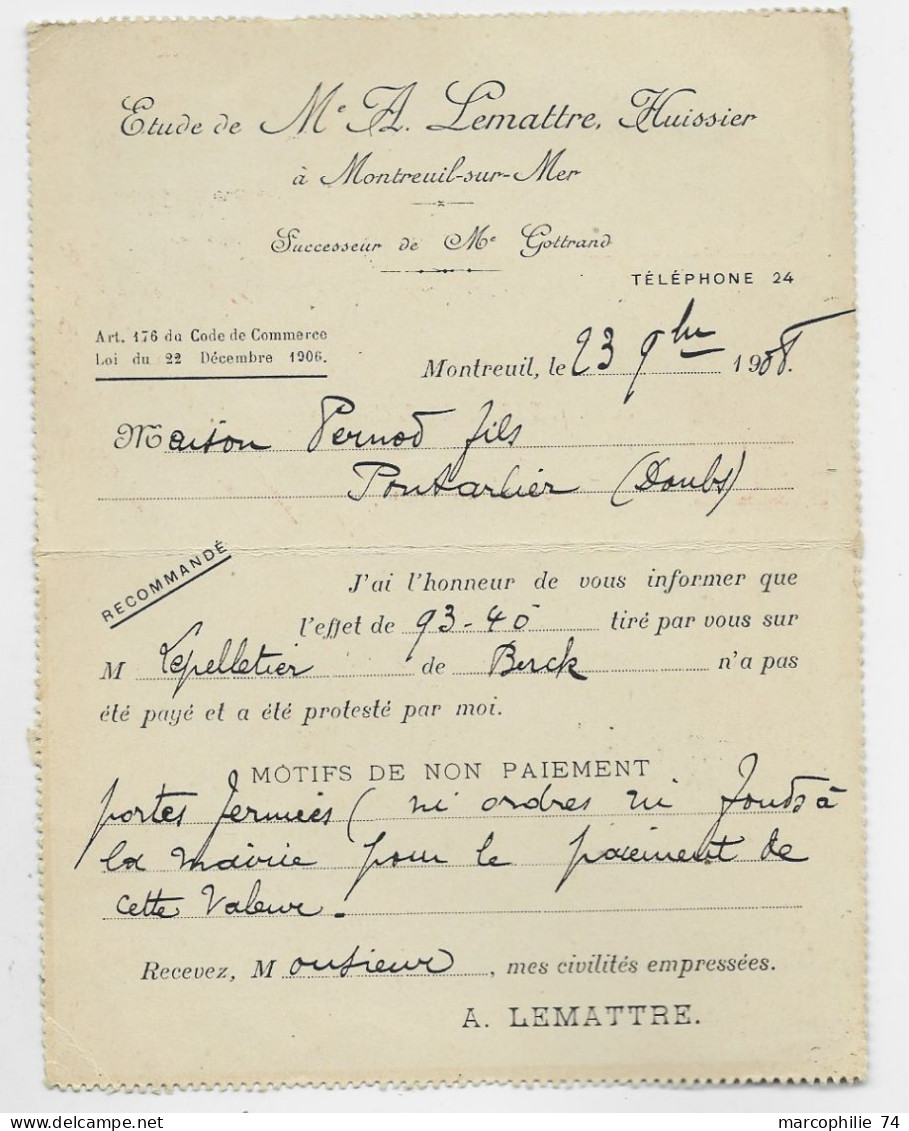 Etude de Me A. Lemattre, Huissier
à Montreuil-sur-Mer
Successeur de Me Gottrand
TÉLÉPHONE 24
Art. 176 du Code de Commerce
Loi du 22 Décembre 1906.
Montreuil, le 23 9bre 1908.
Maison Pernod fils
Pontarlier (Doubs)
RECOMMANDÉ
J'ai l'honneur de vous informer que
l'effet de 93-40 tiré par vous sur
M Lepelletier de Berck n'a pas
été payé et a été protesté par moi.
MOTIFS DE NON PAIEMENT
portes fermées ( ni ordres ni fonds à
la mairie pour le paiement de
cette valeur.
Recevez, Monsieur, mes civilités empressées.
A. LEMATTRE.
delcampe.net
marcophilie 74